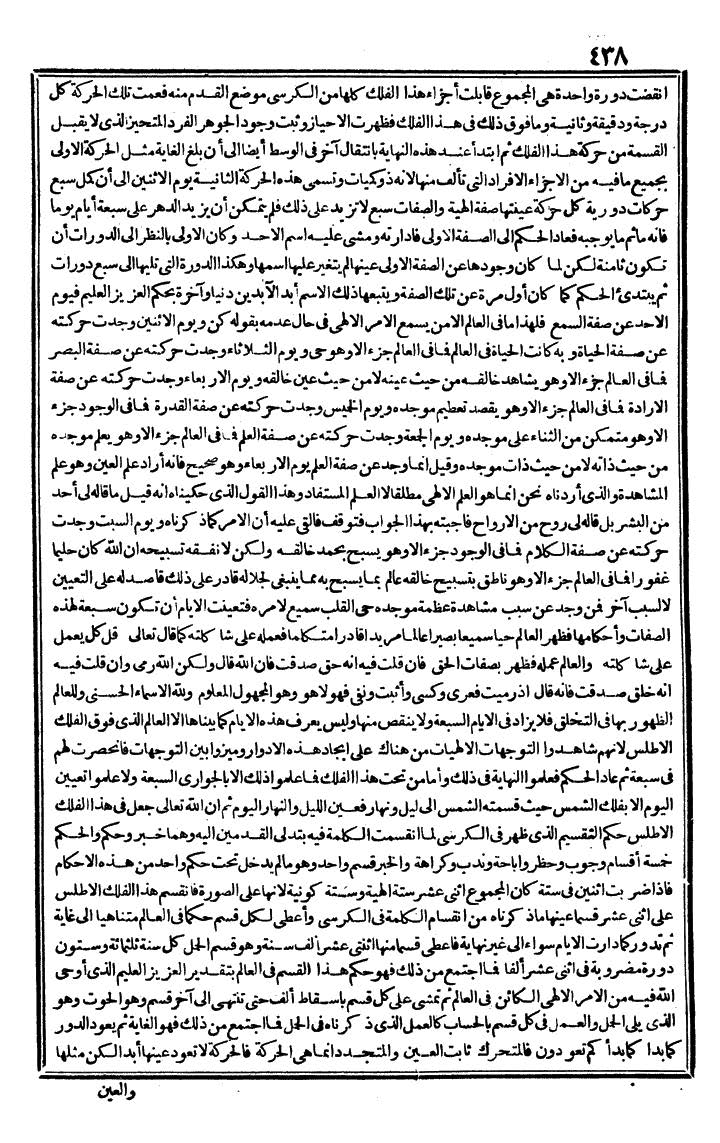 ٤٣٨
انقضت دورة واحدة هي المجموع قابلت أجزاء هذا الفلك كلها من الكرسي موضع القدم منه فعمت تلك الحركة كل
درجة ودقيقة وثانية وما فوق ذلك في هذا الفلك فظهرت الاحياز وثبت وجود الجوهر الفرد المتحيز الذي لا يقبل
القسمة من حركة هذا الفلك ثم ابتدأ عند هذه النهاية بانتقال آخر في الوسط أيضا الى أن بلغ الغاية مثل الحركة الاولى
بجميع ما فيه من الاجزاء الافراد التي تألف منها لانه ذو كميات وتسمى هذه الحركة الثانية يوم الاثنين الى أن كمل سبع
حركات دورية كل حركة عينتها صفة الهية والصفات سبع لا تزيد على ذلك فلم يتمكن أن يزيد الدهر على سبعة أيام يوما
فانه ما ثم ما يوجبه فعاد الحكم الى الصفة الاولى فادارته ومشى عليه اسم الاحد وكان الاولى بالنظر الى الدورات أن
تكون ثامنة لكن لما كان وجودها عن الصفة الاولى عينها لم يتغير عليها اسمها وهكذا الدورة التي تليها الى سبع دورات
ثم يبتدئ الحكم كما كان أول مرة عن تلك الصفة ويتبعها ذلك الاسم أبد الآبدين دنيا وآخرة بحكم العزيز العليم فيوم
الاحد عن صفة السمع فلهذا ما في العالم الا من يسمع الامر الالهي في حال عدمه بقوله كن ويوم الاثنين وجدت حركته
عن صفة الحياة وبه كانت الحياة في العالم فما في العالم جزء الا وهو حي ويوم الثلاثاء وجدت حركته عن صفة البصر
فما في العالم جزء الا وهو يشاهد خالقه من حيث عينه لا من حيث عين خالقه ويوم الاربعاء وجدت حركته عن صفة
الارادة فما في العالم جزء الا وهو يقصد تعظيم موجده ويوم الخيس وجدت حركته عن صفة القدرة فما في الوجود جزء
الا وهو متمكن من الثناء على موجده ويوم الجمعة وجدت حركته عن صفة العلم فما في العالم جزء الا وهو يعلم موجده
من حيث ذاته لا من حيث ذات موجده وقيل انما وجد عن صفة العلم يوم الاربعاء وهو صحيح فانه أراد علم العين وهو علم
المشاهدة والذي أردناه نحن انما هو العلم الالهي مطلقا لا العلم المستفاد وهذا القول الذي حكيناه انه قيل ما قاله لي أحد
من البشر بل قاله لي روح من الارواح فاجبته بهذا الجواب فتوقف فالقي عليه أن الامر كما ذكرناه ويوم السبت وجدت
حركته عن صفة الكلام فما في الوجود جزء الا وهو يسبح بحمد خالقه ولكن لا نفقه تسبيحه ان الله كان حليما
غفورا فما في العالم جزء الا وهو ناطق بتسبيح خالقه عالم بما يسبح به مما ينبغي لجلاله قادر على ذلك قاصد له على التعيين
لا لسبب آخر فمن وجد عن سبب مشاهدة عظمة موجده حي القلب سميع لامره فتعينت الايام أن تكون سبعة لهذه
الصفات وأحكامها فظهر العالم حيا سميعا بصيرا عالما مريدا قادرا متكلما فعمله على شاكلته كما قال تعالى قل كل يعمل
على شاكلته والعالم عمله فظهر بصفات الحق فان قلت فيه انه حق صدقت فان الله قال ولكن الله رمى وان قلت فيه
انه خلق صدقت فانه قال اذ رميت فعرى وكسى وأثبت ونفى فهو لا هو وهو المجهول المعلوم ولله الاسماء الحسنى وللعالم
الظهور بها في التخلق فلا يزاد في الايام السبعة ولا ينقص منها وليس يعرف هذه الايام كما بيناها الا العالم الذي فوق الفلك
الاطلس لانهم شاهدوا التوجهات الالهيات من هناك على ايجاد هذه الادوار وميزوا بين التوجهات فانحصرت لهم
في سبعة ثم عاد الحكم فعلموا النهاية في ذلك وأما من تحت هذا الفلك فما علموا ذلك الا بالجواري السبعة ولا علموا تعيين
اليوم الا بفلك الشمس حيث قسمته الشمس الى ليل ونهار فعين الليل والنهار اليوم ثم ان الله تعالى جعل في هذا الفلك
الاطلس حكم التقسيم الذي ظهر في الكرسي لما انقسمت الكلمة فيه بتدلي القدمين اليه وهما خبر وحكم والحكم
خمسة أقسام وجوب وحظر واباحة وندب وكراهة والخبر قسم واحد وهو ما لم يدخل تحت حكم واحد من هذه الاحكام
فاذا ضربت اثنين في ستة كان المجموع اثني عشر ستة الهية وستة كونية لانها على الصورة فانقسم هذا الفلك الاطلس
على اثني عشر قسما عينها ما ذكرناه من انقسام الكلمة في الكرسي وأعطى لكل قسم حكما في العالم متناهيا الى غاية
ثم تدور كما دارت الايام سواء الى غير نهاية فاعطى قسما منها اثنتي عشر ألف سنة وهو قسم الحمل كل سنة ثلثمائة وستون
دورة مضروبة في اثني عشر ألفا فما اجتمع من ذلك فهو حكم هذا القسم في العالم بتقدير العزيز العليم الذي أوحى
الله فيه من الامر الالهي الكائن في العالم ثم تمشي على كل قسم باسقاط ألف حتى تنتهي الى آخر قسم وهو الحوت وهو
الذي يلي الحمل والعمل في كل قسم بالحساب كالعمل الذي ذكرناه في الحمل فما اجتمع من ذلك فهو الغاية ثم يعود الدور
كما بدا كما بدأكم تعودون فالمتحرك ثابت العين والمتجدد انما هي الحركة فالحركة لا تعود عينها أبدا لكن مثلها
والعين